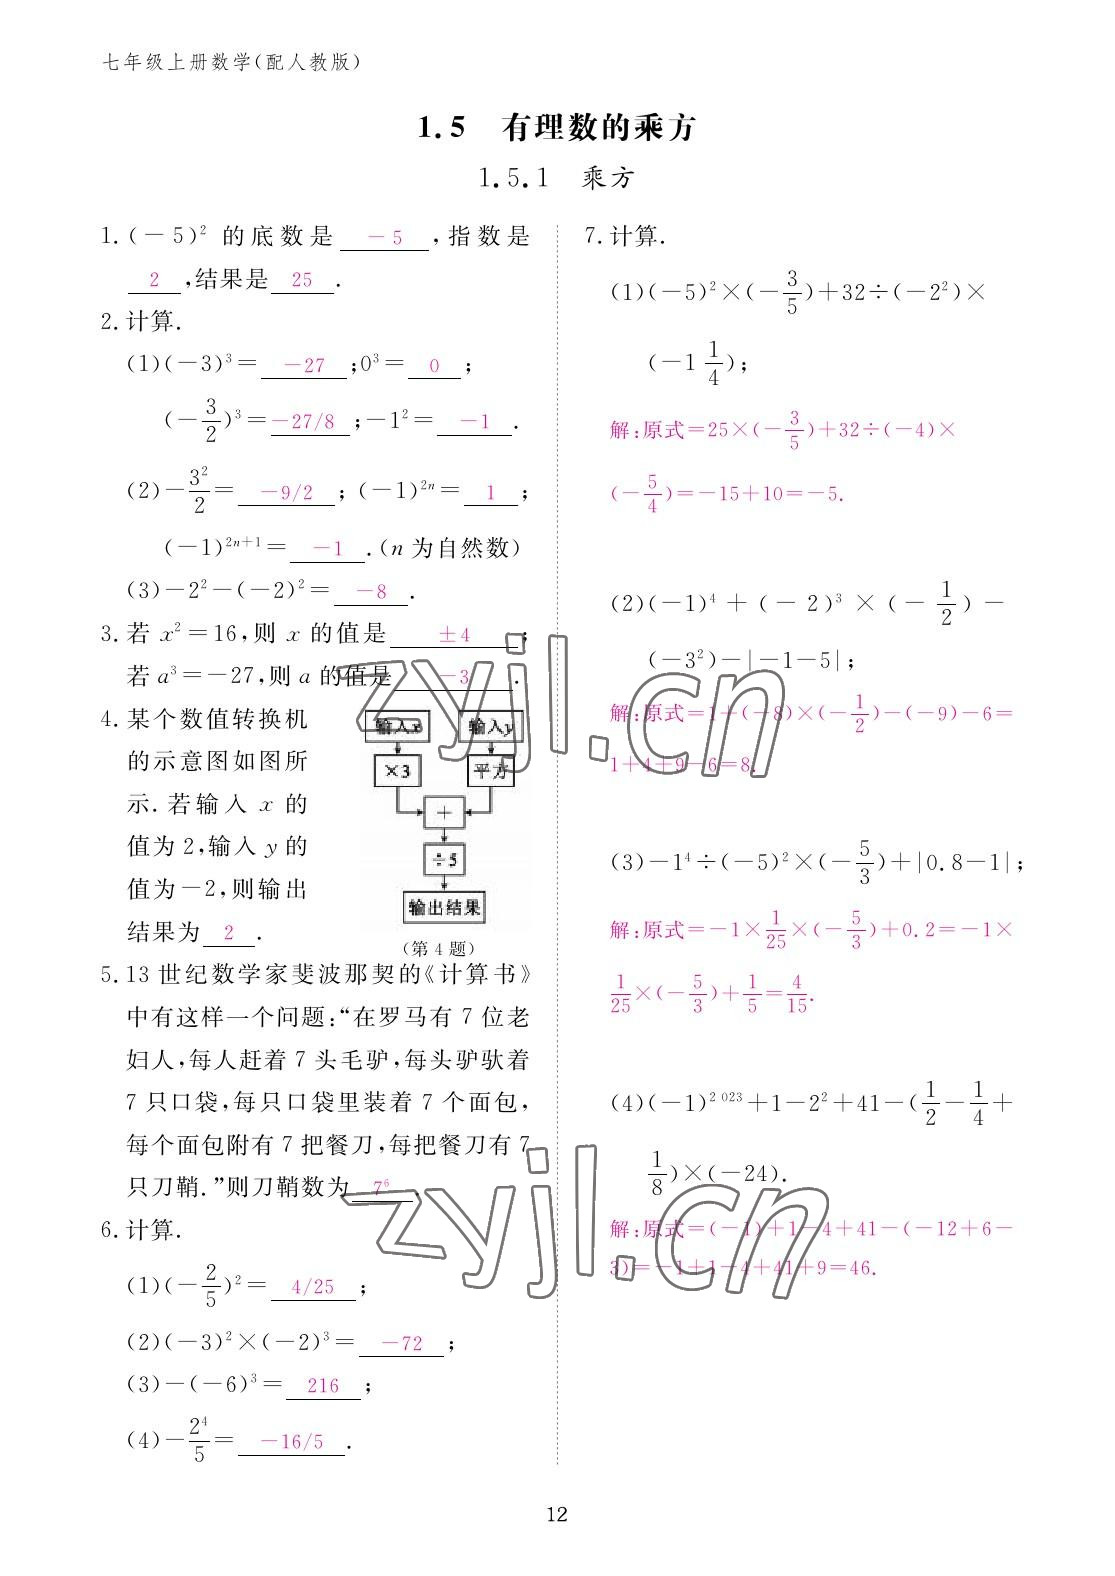 七年级上册数学(配人教版)
1.5 有理数的乘方
1.5.1 乘方
1.(-5)² 的底数是 -5 ,指数是
2 ,结果是 25 .
2.计算.
(1)(-3)³= -27 ;0³= 0 ;
(-3/2)³= -27/8 ;-1²= -1 .
(2)-3²/2= -9/2 ;(-1)²ⁿ= 1 ;
(-1)²ⁿ⁺¹= -1 .(n 为自然数)
(3)-2²-(-2)²= -8 .
3.若 x²=16,则 x 的值是 ±4 ;
若 a³=-27,则 a 的值是 -3 .
4.某个数值转换机
的示意图如图所
示.若输入 x 的
值为 2,输入 y 的
值为-2,则输出
结果为 2 .
输入x 输入y
×3 平方
+
÷5
输出结果
(第 4 题)
5.13 世纪数学家斐波那契的《计算书》
中有这样一个问题:“在罗马有 7 位老
妇人,每人赶着 7 头毛驴,每头驴驮着
7 只口袋,每只口袋里装着 7 个面包,
每个面包附有 7 把餐刀,每把餐刀有 7
只刀鞘.”则刀鞘数为 7⁶ .
6.计算.
(1)(-2/5)²= 4/25 ;
(2)(-3)²×(-2)³= -72 ;
(3)-(-6)³= 216 ;
(4)-2⁴/5= -16/5 .
7.计算.
(1)(-5)²×(-3/5)+32÷(-2²)×
(-1 1/4);
解:原式=25×(-3/5)+32÷(-4)×
(-5/4)=-15+10=-5.
(2)(-1)⁴+(-2)³×(-1/2)-
(-3²)-|-1-5|;
解:原式=1+(-8)×(-1/2)-(-9)-6=
1+4+9-6=8.
(3)-1⁴÷(-5)²×(-5/3)+|0.8-1|;
解:原式=-1×1/25×(-5/3)+0.2=-1×
1/25×(-5/3)+1/5=4/15.
(4)(-1)²⁰²³+1-2²+41-(1/2-1/4+
1/8)×(-24).
解:原式=(-1)+1-4+41-(-12+6-
3)=-1+1-4+41+9=46.
zyjl.cn
zyjl.cn
12